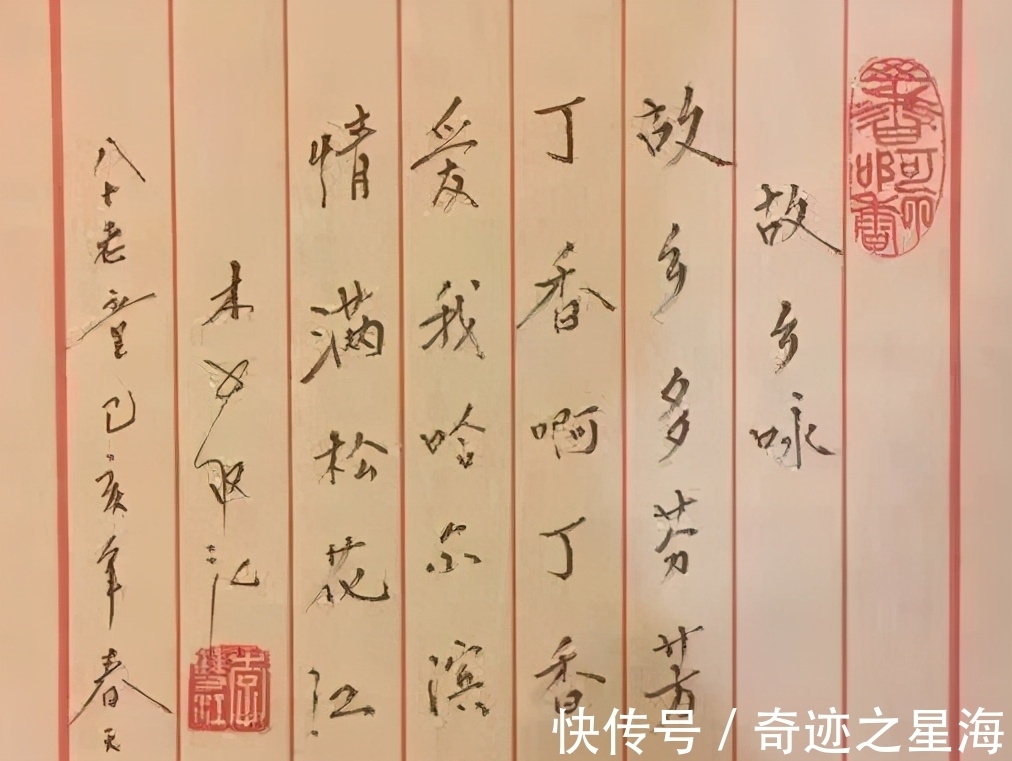 故乡咏
故乡多芬芳
丁香啊丁香
爱我哈尔滨
情满松花江
木 记
李雙江
八十老童己亥年春天
快传号 / 奇迹之星海